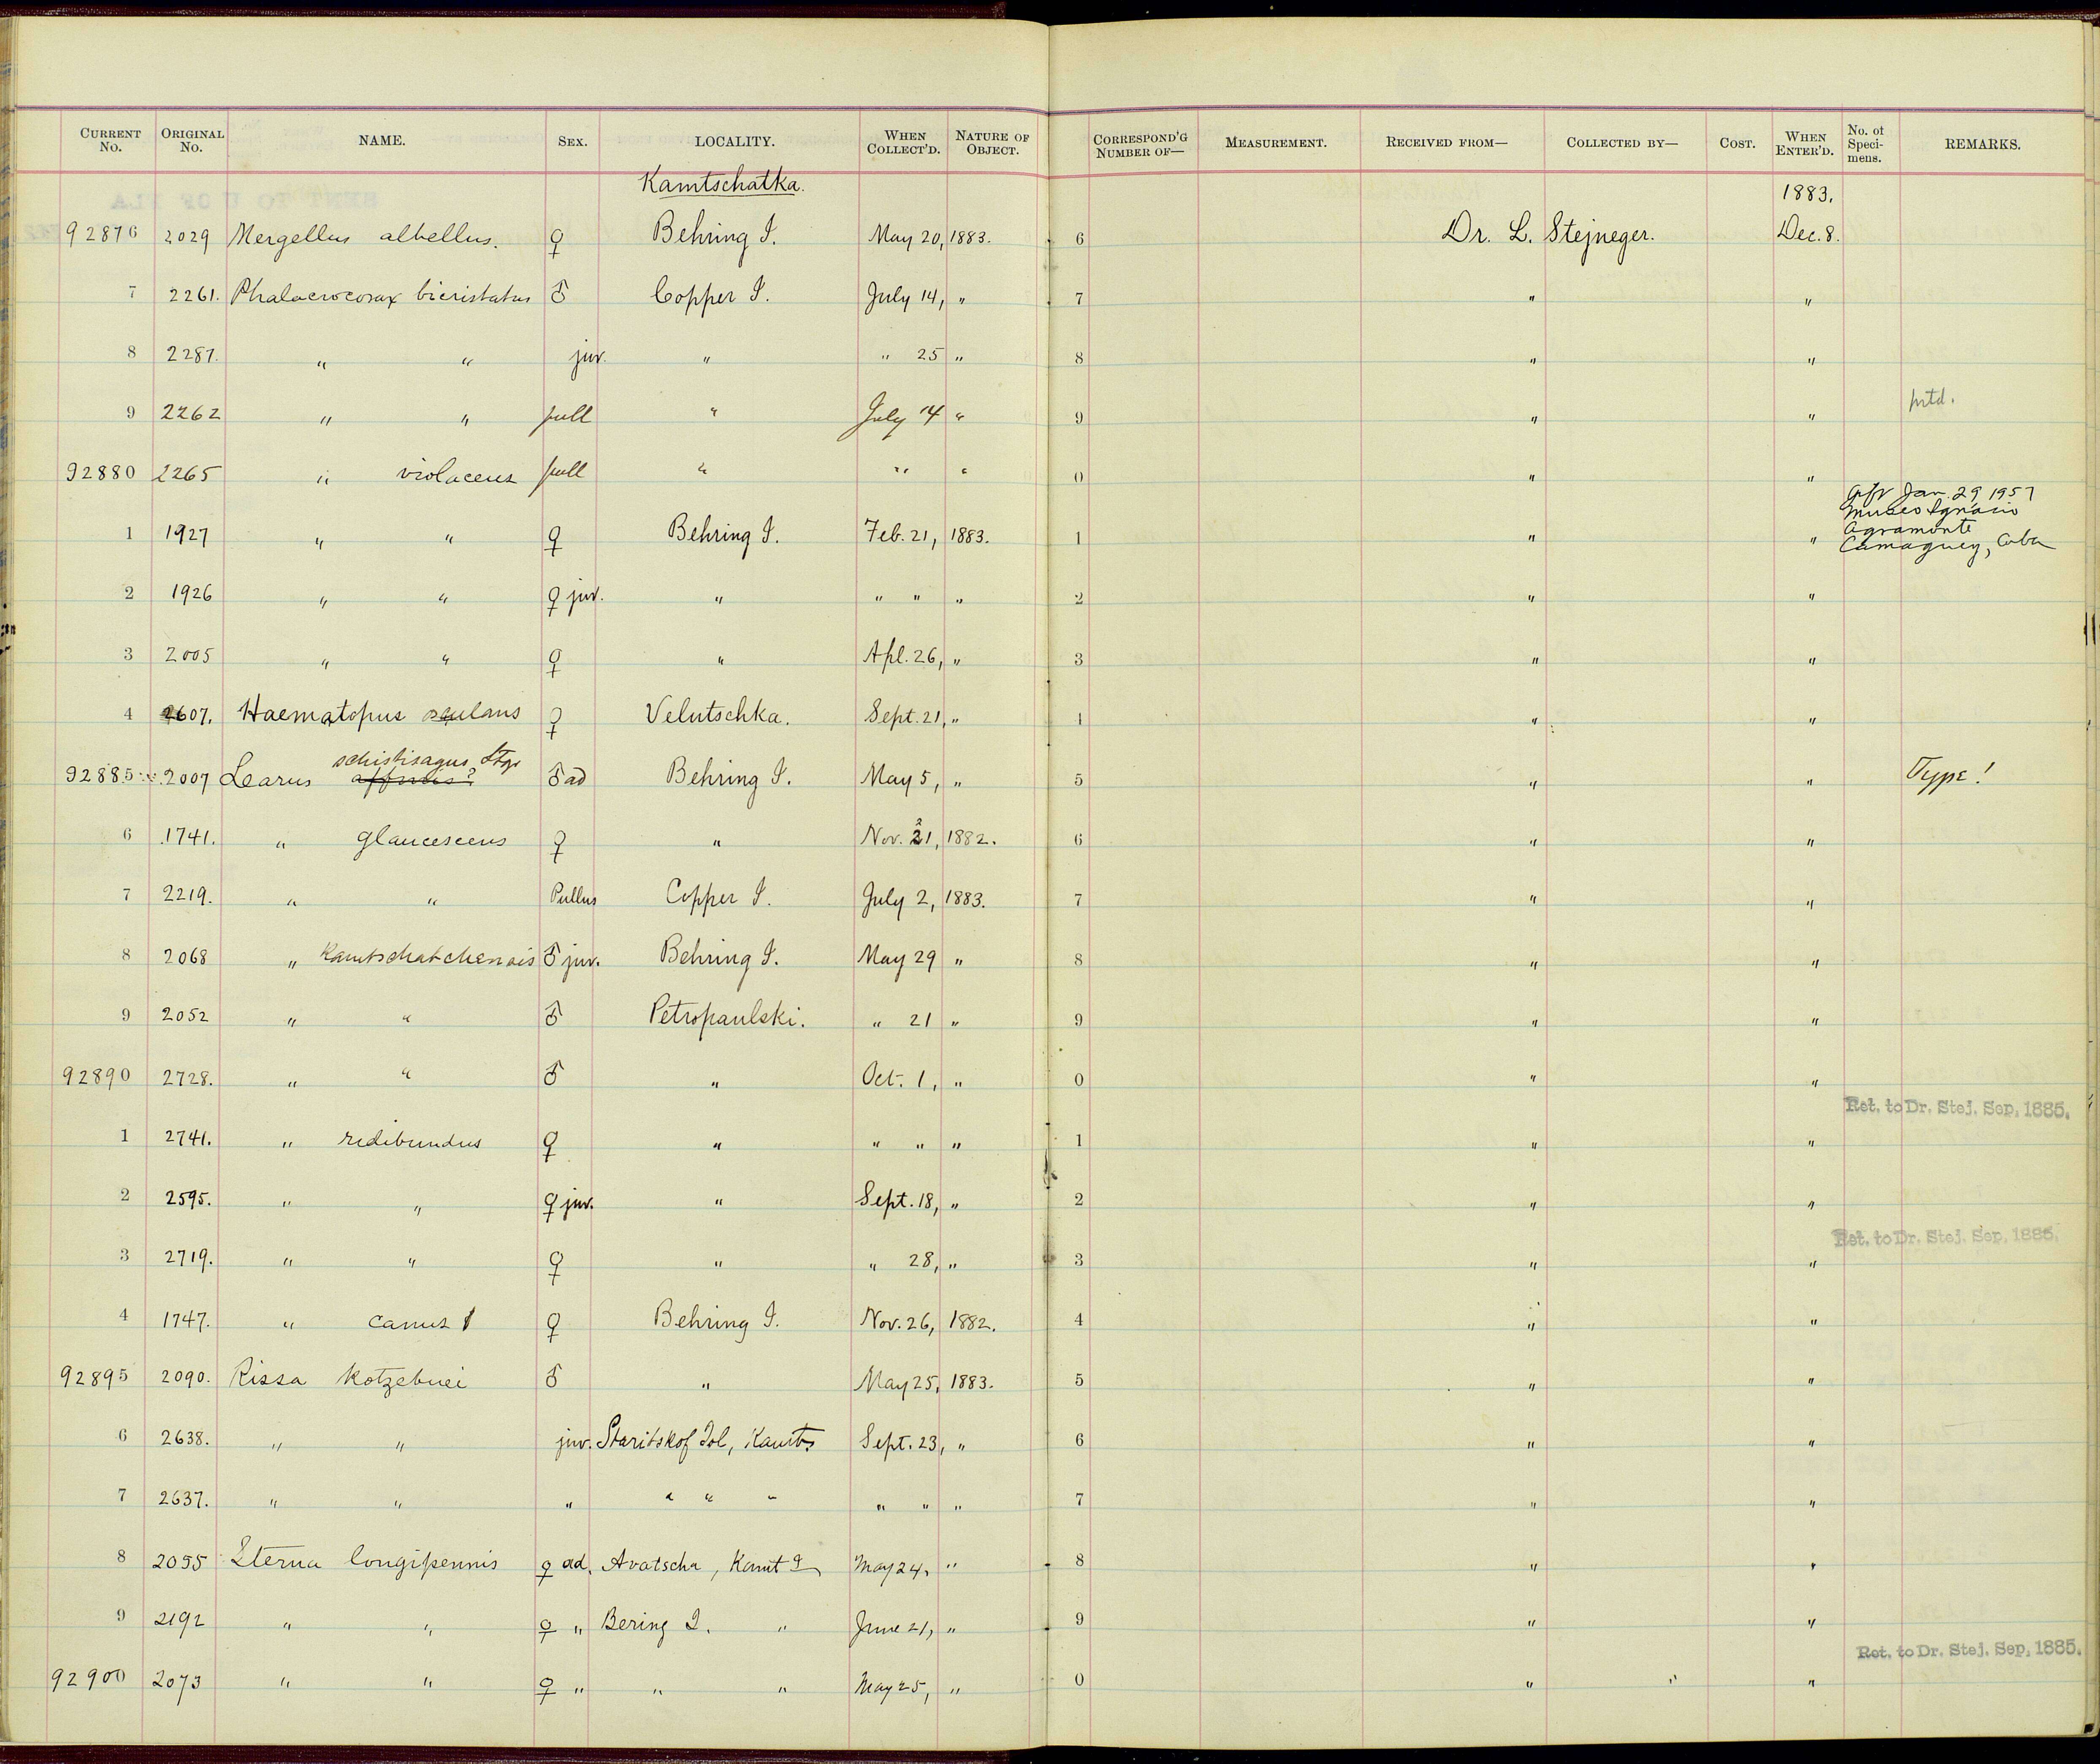 CURRENT No. ORIGINAL No. NAME. SEX. LOCALITY. WHEN COLLECT'D. NATURE OF OBJECT. CORRESPOND'G NUMBER OF— MEASUREMENT. RECEIVED FROM— COLLECTED BY— COST. WHEN ENTER'D. No. of Specimens. REMARKS.
Kamtschatka. 1883.
92876 2029 Mergellus albellus. ♀ Behring I. May 20, 1883. 6 Dr. L. Stejneger. Dec. 8.
7 2261. Phalacrocorax bicristatus ♂ Copper I. July 14, " 7 " "
8 2287. " " juv. " " 25 " 8 " "
9 2262 " " pull " July 14 " 9 " " prtd.
92880 2265 " violaceus pull " " " 0 " "
Gift Jan. 29 1957
Museo Ignacio
1 1927 " " ♀ Behring I. Feb. 21, 1883. 1 " " Agramonte
Camaguey, Cuba
2 1926 " " ♀ juv. " " " " 2 " "
3 2005 " " ♀ " Apl. 26, " 3 " "
4 2607. Haematopus osculans ♀ Velutschka. Sept. 21, " 4 " "
schistisagus Stgr
92885 2007 Larus affinis? ♂ ad Behring I. May 5, " 5 " " Type!
6 1741. " glaucescens ♀ " Nov. 21, 1882. 6 " "
7 2219. " " Pullus Copper I. July 2, 1883. 7 " "
8 2068 " Kamtschatchensis ♂ juv. Behring I. May 29 " 8 " "
9 2052 " " ♂ Petropaulski. " 21 " 9 " "
92890 2728. " " ♂ " Oct. 1, " 0 " "
Ret. to Dr. Stej. Sep. 1885.
1 2741. " ridibundus ♀ " " " " 1 " "
2 2595. " " ♀ juv. " Sept. 18, " 2 " "
Ret. to Dr. Stej. Sep. 1885.
3 2719. " " ♀ " " 28, " 3 " "
4 1747. " canus ♀ Behring I. Nov. 26, 1882. 4 " "
92895 2090. Rissa Kotzebuei ♂ " May 25, 1883. 5 " "
6 2638. " " juv. Staritskof Isl, Kamts Sept. 23, " 6 " "
7 2637. " " " " " " " " " 7 " "
8 2055 Sterna longipennis ♀ ad. Avatscha, Kamt May 24, " 8 " "
9 2192 " " ♀ " Bering I. " June 21, " 9 " "
Ret. to Dr. Stej. Sep. 1885.
92900 2073 " " ♀ " " " May 25, " 0 " " "